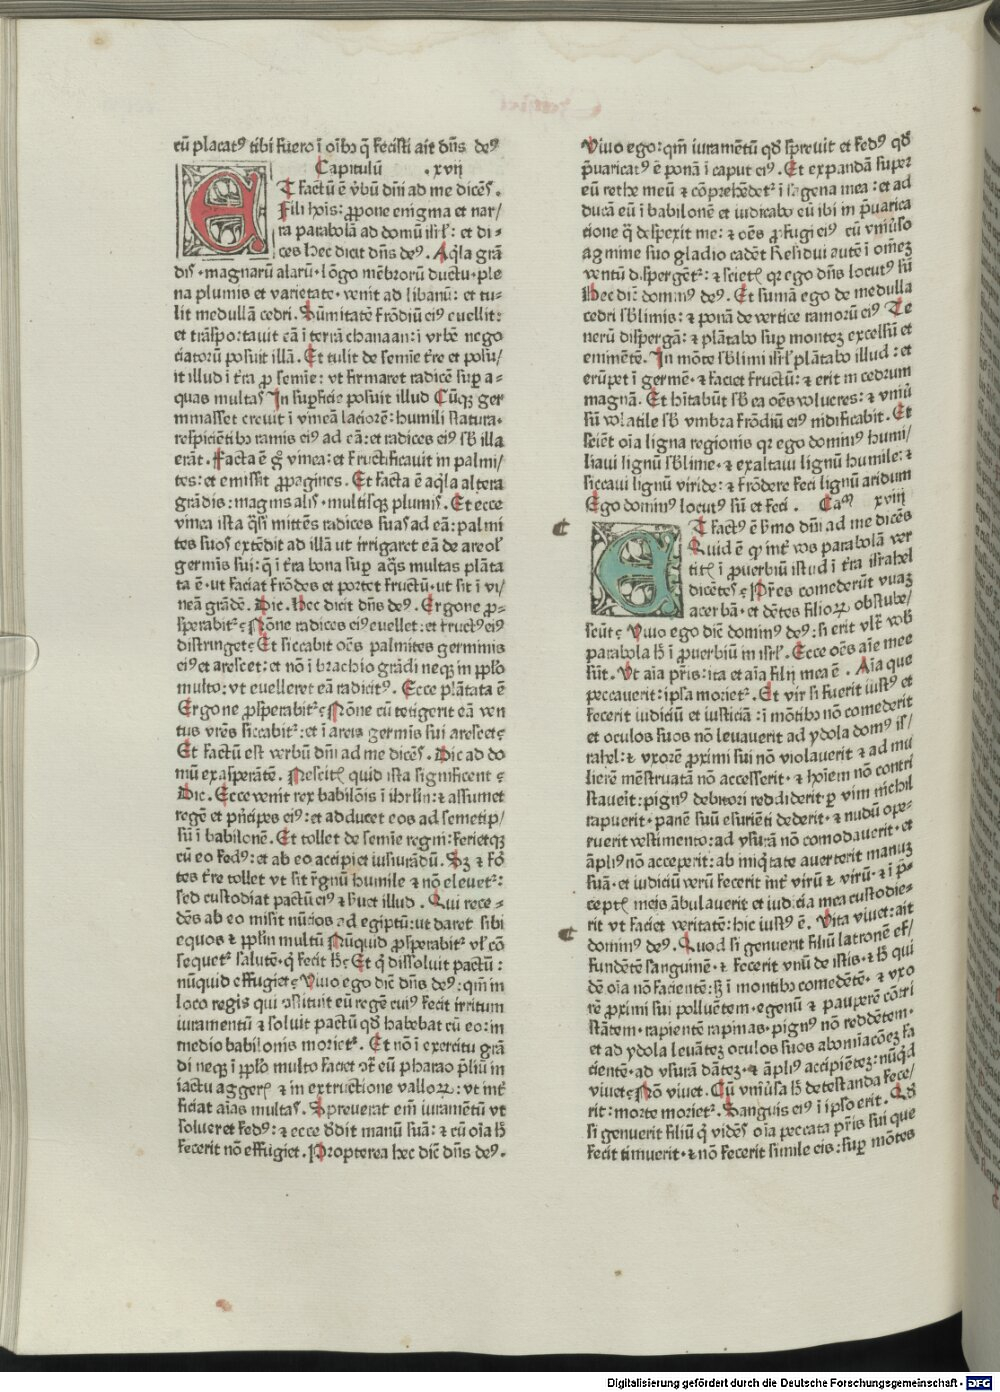 cū placatꝰ tibi fuero ī oībꝫ q̄ fecisti ait dn̄s deꝰ
Capitulū .xvij
ET factū ē v̄bū dn̄i ad me dicēs.
Fili hoīs: ꝓpone enigma et nar/
ra parabolā ad domū isr̄l: et di-
ces hec dicit dn̄s deꝰ. Aq̄la grā
dis · magnarū alarū · lōgo mēbrorū ductu · ple
na plumis et varietate · venit ad libanū: et tu-
lit medullā cedri. Sūmitatē frōdiū eiꝰ euellit:
et trāsportauit eā ī terrā chanaan: ī vrbē nego
ciatorū posuit illā. Et tulit de semie t̄re et posu/
it illud ī t̄ra ꝓ semie: vt firmaret radicē suꝑ a-
quas multas In suꝑficie posuit illud Cūqꝫ ger
mmasset creuit ī vineā laciorē: humili statura ·
respiciētibꝫ ramis eiꝰ ad eā: et radices eiꝰ sb̄ illa
erāt. Facta ē gͦ vinea: et fructificauit in palmi/
tes: et emisit ꝓpagines. Et facta ē aq̄la altera
grādis: magnis alis · multisqꝫ plumis. Et ecce
vinea ista q̄si mittēs radices suas ad eā: palmi
tes suos extēdit ad illā ut irrigaret eā de areolꝭ
germis sui: q̄ ī t̄ra bona suꝑ aq̄s multas plāta
ta ē · ut faciat frōdes et portet fructū · ut sit ī vi/
neā grādē. Dic. Hec dicit dn̄s deꝰ. Ergone ꝓ-
sperabitᷣ? Nōne radices eiꝰ euellet: et fructꝰ eiꝰ
distringet? Et siccabit oēs palmites germinis
eiꝰ et arescet: et nō ī brachio grādi neqꝫ in ppl̄o
multo: vt euelleret eā radicitꝰ. Ecce plātata ē
Ergone ꝓsperabitᷣ? Nōne cū tetigerit eā ven
tus vrēs siccabitᷣ: et ī areis germis sui arescet?
Et factū est verbū dn̄i ad me dicēs. Dic ad do
mū exasperātē. Nescitꝭ quid ista significent?
Dic. Ecce venit rex babilōis ī ihrl̄m: et assumet
regē et pn̄cipes eiꝰ: et adducet eos ad semetip/
sū ī babilonē. Et tollet de semie regni: ferietqꝫ
cū eo fedꝰ: et ab eo accipiet iusiurādū. Sꝫ ⁊ for
tes t̄re tollet vt sit r̄gnū humile ⁊ nō eleuetᷣ:
sed custodiat pactū eiꝰ et s̄uet illud. Qui rece-
dēs ab eo misit nūcios ad egiptū: ut daret sibi
equos ⁊ ppl̄m multū Nūquid ꝓsperabitᷣ vl̓ cō
sequetᷣ salutē · q̄ fecit h̄? Et q̄ dissoluit pactū:
nūquid effugiet? Viuo ego dic̄ dn̄s deꝰ: qm̄ in
loco regis qui ꝯstituit eū regē cuiꝰ fecit irritum
iuramentū ⁊ soluit pactū qd̄ habebat cū eo: in
medio babilonis morietᷣ. Et nō ī exercitu grā
di neqꝫ ī ppl̄o multo faciet ꝯt̄ eū pharao p̄liū in
iactu aggerꝭ ⁊ in extructione valloꝝ: vt int̄
ficiat aīas multas. Spreuerat em̄ iuramētū vt
solueret fedꝰ: ⁊ ecce ddit manū suā: ⁊ cū oīa h̄
fecerit nō effugiet. Propterea hec dic̄ dn̄s deꝰ.
Viuo ego: qm̄ iuramētū qd̄ sp̄reuit et fedꝰ qd̄
p̄uaricatꝰ ē ponā ī caput eiꝰ. Et expandā super
eū rethe meū ⁊ cōprehēdetᷣ ī sagena mea: et ad
ducā eū ī babilonē et iudicabo eū ibi in p̄uarica
tione q̄ despexit me: ⁊ oēs ꝓfugi eiꝰ cū vniúso
agmine suo gladio cadēt Residui autē ī om̄eꝫ
ventū dispergētᷣ: ⁊ scietꝭ qꝛ ego dn̄s locutꝰ sū
Hec dic̄ dominꝰ deꝰ. Et sumā ego de medulla
cedri sb̄limis: ⁊ ponā de vertice ramorū eiꝰ Te
nerū dispergā: ⁊ plātabo suꝑ monteꝫ excelsū et
eminētē. In mōte sb̄limi isr̄l plātabo illud: et
erūpet ī germē · ⁊ faciet fructū: ⁊ erit in cedrum
magnā. Et hītabūt sb̄ ea oēs volucres: ⁊ vniú
sū volatile sb̄ vmbra frōdiū eiꝰ nidificabit. Et
sciēt oīa ligna regionis qꝛ ego dominꝰ humi/
liaui lignū sb̄lime · ⁊ exaltaui lignū humile: ⁊
siccaui lignū viride: ⁊ frōdere feci lignū aridum
Ego dominꝰ locutꝰ sū et feci. Caᵐ xviij
ET factꝰ ē s̄mo dn̄i ad me dicēs
Quid ē qꝛ int̄ vos parabolā ver
titꝭ ī ꝓuerbiū istud ī t̄ra israhel
dicētes? Pr̄es comederūt vuaꝫ
acerbā · et dētes filioꝝ obstube/
scūt? Viuo ego dic̄ dominꝰ deꝰ: si erit vlt̄ vob̄
parabola h̄ ī ꝓuerbiū in isr̄l. Ecce oēs aīe mee
sūt. Vt aīa pr̄is: ita et aīa filij mea ē. Aīa que
peccauerit: ipsa morietᷣ. Et vir si fuerit iustꝰ et
fecerit iudiciū et iusticiā: ī mōtibꝫ nō comederit
et oculos suos nō leuauerit ad ydola domꝰ is/
rahel: ⁊ vxorē ꝓximi sui nō violauerit ⁊ ad mu
lierē mēstruatā nō accesserit · ⁊ hoīem nō contri
stauerit: pignꝰ debitori reddiderit · ꝑ vim nichil
rapuerit · panē suū esuriēti dederit · ⁊ nudū ope-
ruerit vestimento: ad vsurā nō comodauerit · et
āpliꝰ nō acceperit: ab iniq̄tate auerterit manuꝫ
suā · et iudiciū verū fecerit int̄ virū ⁊ virū · ⁊ ī p̄-
ceptꝭ meis ābulauerit et iudicia mea custodie-
rit vt faciet veritatē: hic iustꝰ ē. Vita viuet: ait
dominꝰ deꝰ. Quod si genuerit filiū latronē ef/
fundētē sanguinē · ⁊ fecerit vnū de istis · ⁊ h̄ qui
dē oīa nō facientē: sꝫ ī montibꝫ comedētē · ⁊ vxo
rē ꝓximi sui polluētem · egenū ⁊ pauperē cōtri
stātem · rapientē rapinas · pignꝰ nō reddētem ·
et ad ydola leuāteꝫ oculos suos abomīacōeꝫ fa
cientē · ad vsurā dāteꝫ · ⁊ āpliꝰ accipiēteꝫ: nūq̄d
viuet? Nō viuet. Cū vniúsa h̄ detestanda fece/
rit: morte morietᷣ. Sanguis eiꝰ ī ipso erit. Qd̄
si genuerit filiū q̄ vidēs oīa peccata pr̄is sui que
fecit timuerit · ⁊ nō fecerit simile eis: suꝑ mōtes
Digitalisierung gefördert durch die Deutsche Forschungsgemeinschaft - DFG